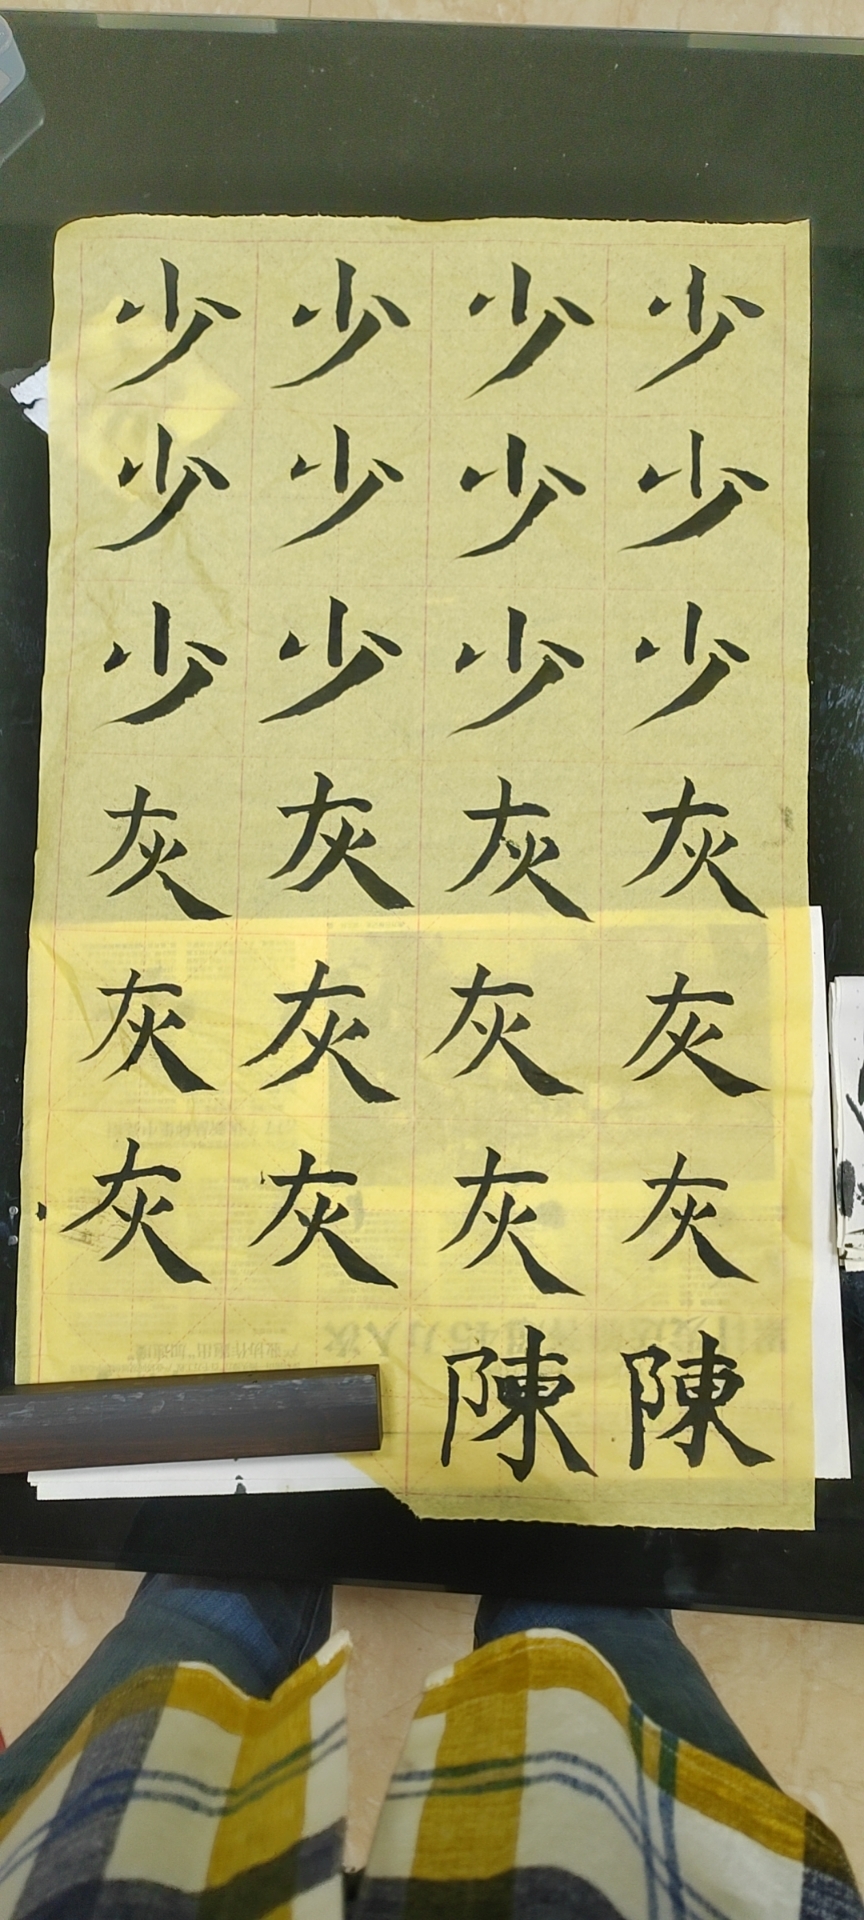 少 少 少 少
少 少 少 少
少 少 少 少
灰 灰 灰 灰
灰 灰 灰 灰
灰 灰 灰 灰
陳 陳